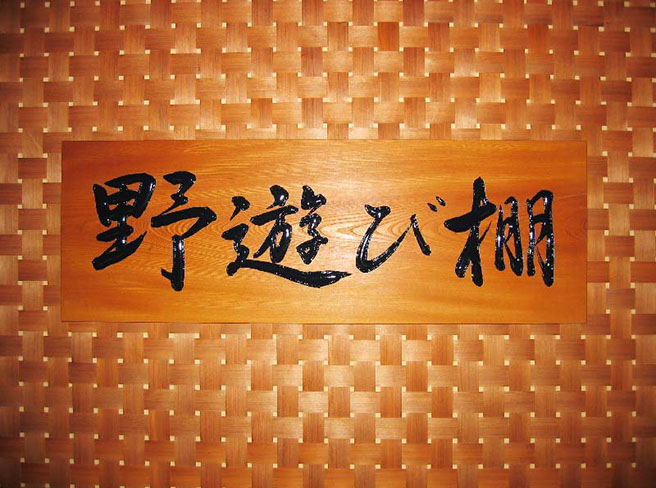 野遊び棚